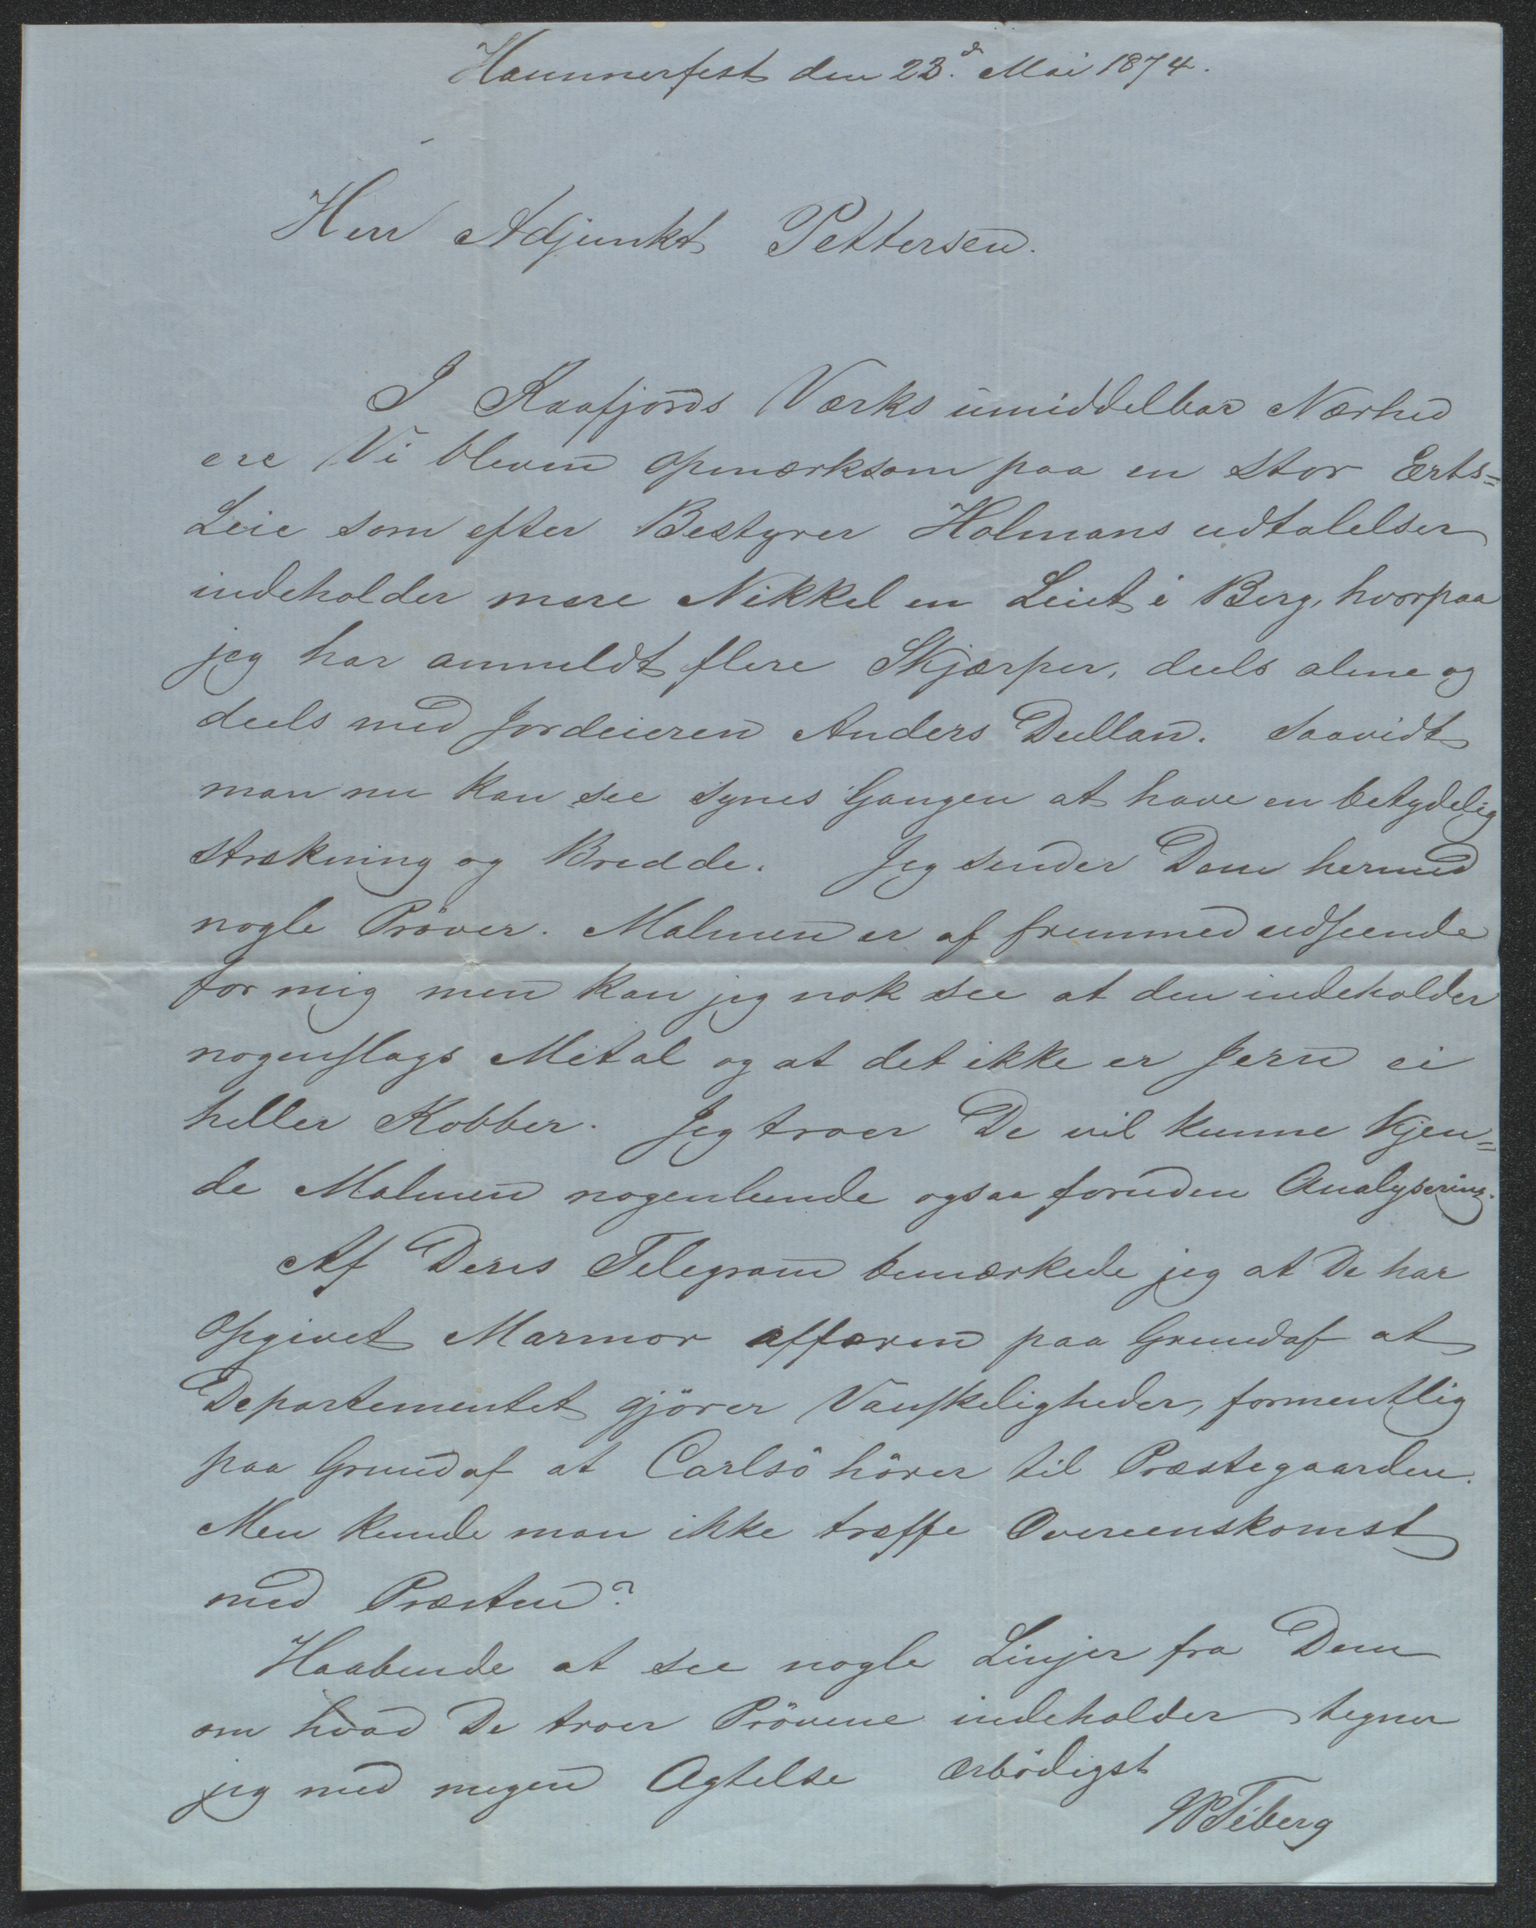 Hammerfest den 23d. Mai 1874.
Herr Adjunkt Pettersen.
I Kaafjords Værks umiddelbar Nærhed
ere Vi bleven opmærksom paa en stor Erts=
Leie som efter Bestyrer Holmans udtalelser
indeholder mere Nikkel en Leiet i Berg, hvorpaa
jeg har anmeldt flere Skjærper, deels alene og
deels med Jordeieren Anders Dullan. Saavidt
man nu kan see synes Gangen at have en betydelig
strækning og Bredde. Jeg sender Dem hermed
nogle Prøver. Malmen er af fremmed udseende
for mig men kan jeg nok see at den indeholder
nogenslags Metal og at det ikke er Jern ei
heller Kobber. Jeg troer De vil kunne Kjen=
de Malmen nogenlunde ogsaa foruden Analysering.
Af Deres Telegram bemærkede jeg at De har
opgivet Marmor affæren paa Grundaf at
Departementet gjörer Vanskeligheder, formentlig
paa Grundaf at Carlsö hörer til Præstegaarden.
Men kunde man ikke træffe Overeenskomst
med Præsten?
Haabende at see nogle Linjer fra Dem
om hvad De troer Prövene indeholder tegner
jeg med megen Agtelse ærbödigst
Tiberg